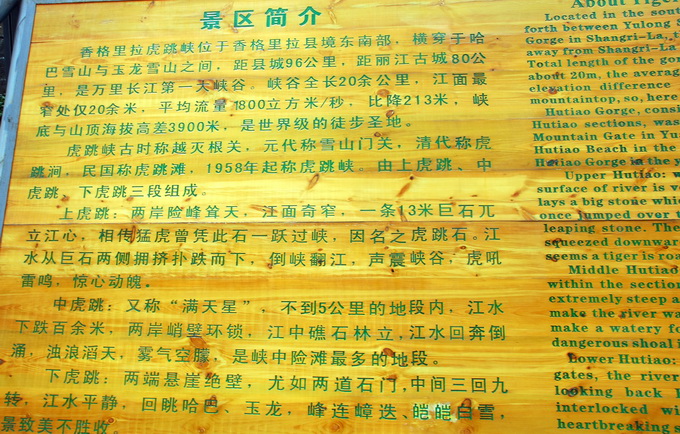 景区简介
香格里拉虎跳峡位于香格里拉县境东南部，横穿于哈
巴雪山与玉龙雪山之间，距县城96公里，距丽江古城80公
里，是万里长江第一大峡谷，峡谷全长20余公里，江面最
窄处仅20余米，平均流量1800立方米/秒，比降213米，峡
底与山顶海拔高差3900米，是世界级的徒步圣地。
虎跳峡古时称越灭根关，元代称雪山门关，清代称虎
跳涧，民国称虎跳滩，1958年起称虎跳峡。由上虎跳、中
虎跳、下虎跳三段组成。
上虎跳：两岸险峰耸天，江面奇窄，一条13米巨石兀
立江心，相传猛虎曾凭此石一跃过峡，因名之虎跳石。江
水从巨石两侧拥挤扑跌而下，倒峡翻江，声震峡谷，虎吼
雷鸣，惊心动魄。
中虎跳：又称“满天星”，不到5公里的地段内，江水
下跌百余米，两岸峭壁环锁，江中礁石林立，江水回奔倒
涌，浊浪滔天，雾气空朦，是峡中险滩最多的地段。
下虎跳：两端悬崖绝壁，尤如两道石门，中间三回九
转，江水平静，回眺哈巴、玉龙，峰连嶂迭、皑皑白雪，
景致美不胜收。
About Tiger
Located in the sout
forth between Yulong S
Gorge in Shangri-La, t
away from Shangri-La
Total length of the gor
about 20m, the averag
elevation difference
mountaintop, so, here
Hutiao Gorge, consi
Hutiao sections, was
Mountain Gate in Yu
Hutiao Beach in the
Hutiao Gorge in the y
Upper Hutiao: w
surface of river is v
lays a big stone whic
once jumped over t
leaping stone. The
squeezed downwar
seems a tiger is roa
Middle Hutiao
within the section
extremely steep a
make the river wa
make a watery fo
dangerous shoal i
Lower Hutiao:
gates, the river
looking back H
interlocked wi
heartbreaking s